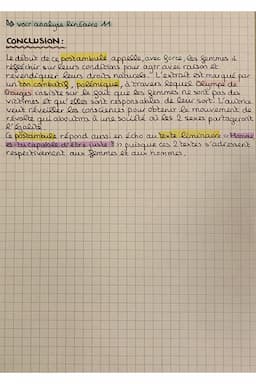 ↳ voir analyse linéaire 11
CONCLUSION :
Le début de ce postambule appelle, avec force, les femmes à
réfléchir sur leurs conditions pour agir avec raison et
revendiquer leurs droits naturels. L'extrait est marqué par
un ton combatif, polémique, à travers lequel Olympe de
Gouges insiste sur le fait que les femmes ne sont pas des
victimes et qu'elles sont responsables de leur sort. L'autrice
veut réveiller les consciences pour obtenir le mouvement de
révolte qui aboutira à une société où les 2 sexes partageront
l'égalité.
Ce postambule répond aussi en écho au texte liminaire « Homme
es-tu capable d'être juste ? » puisque ces 2 textes s'adressent
respectivement aux femmes et aux hommes.